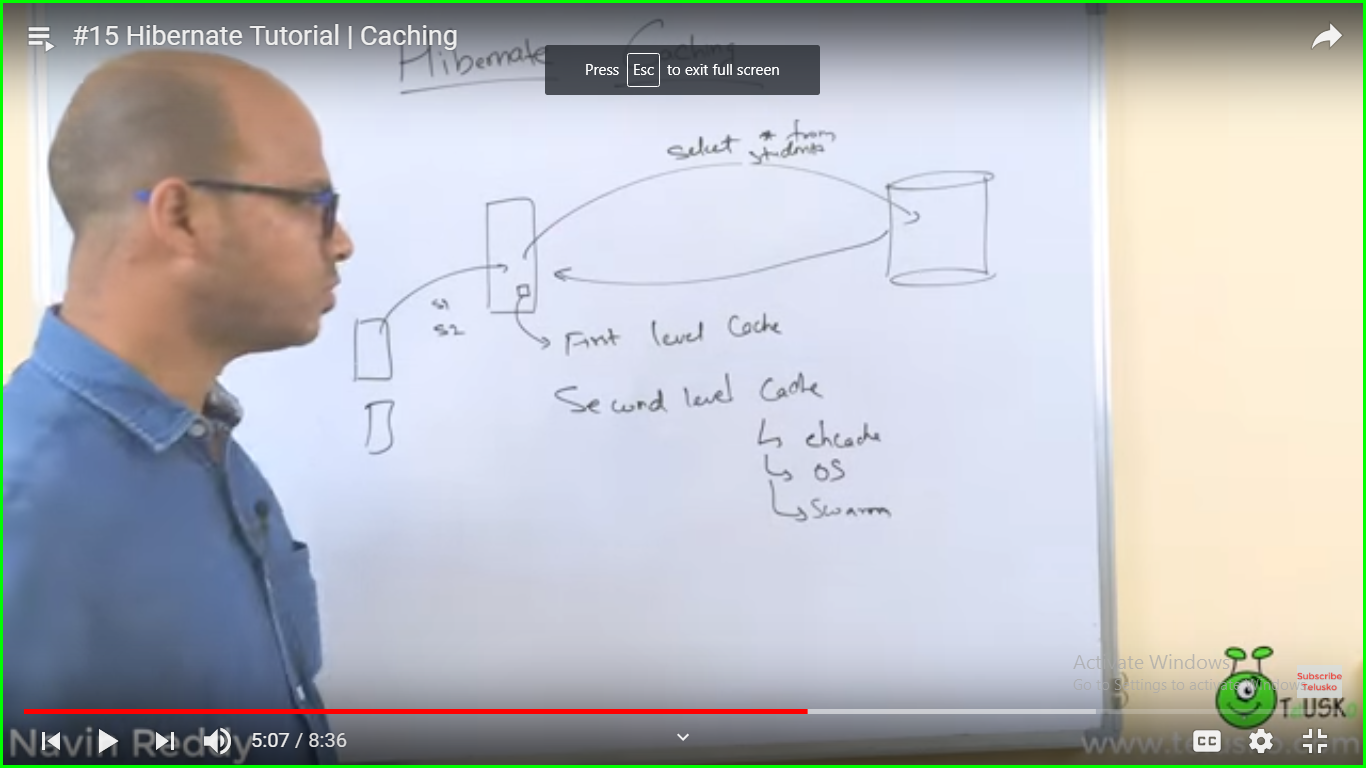 #15 Hibernate Tutorial | Caching
Hibernate Caching
Press Esc to exit full screen
select * from
students
S1
S2
First level Cache
Second level Cache
ehcache
OS
Swarm
Activate Windows
Go to Settings to activate Windows.
Subscribe
Telusko
TELUSKO
Navin Reddy
5:07 / 8:36
CC
www.telusko.com